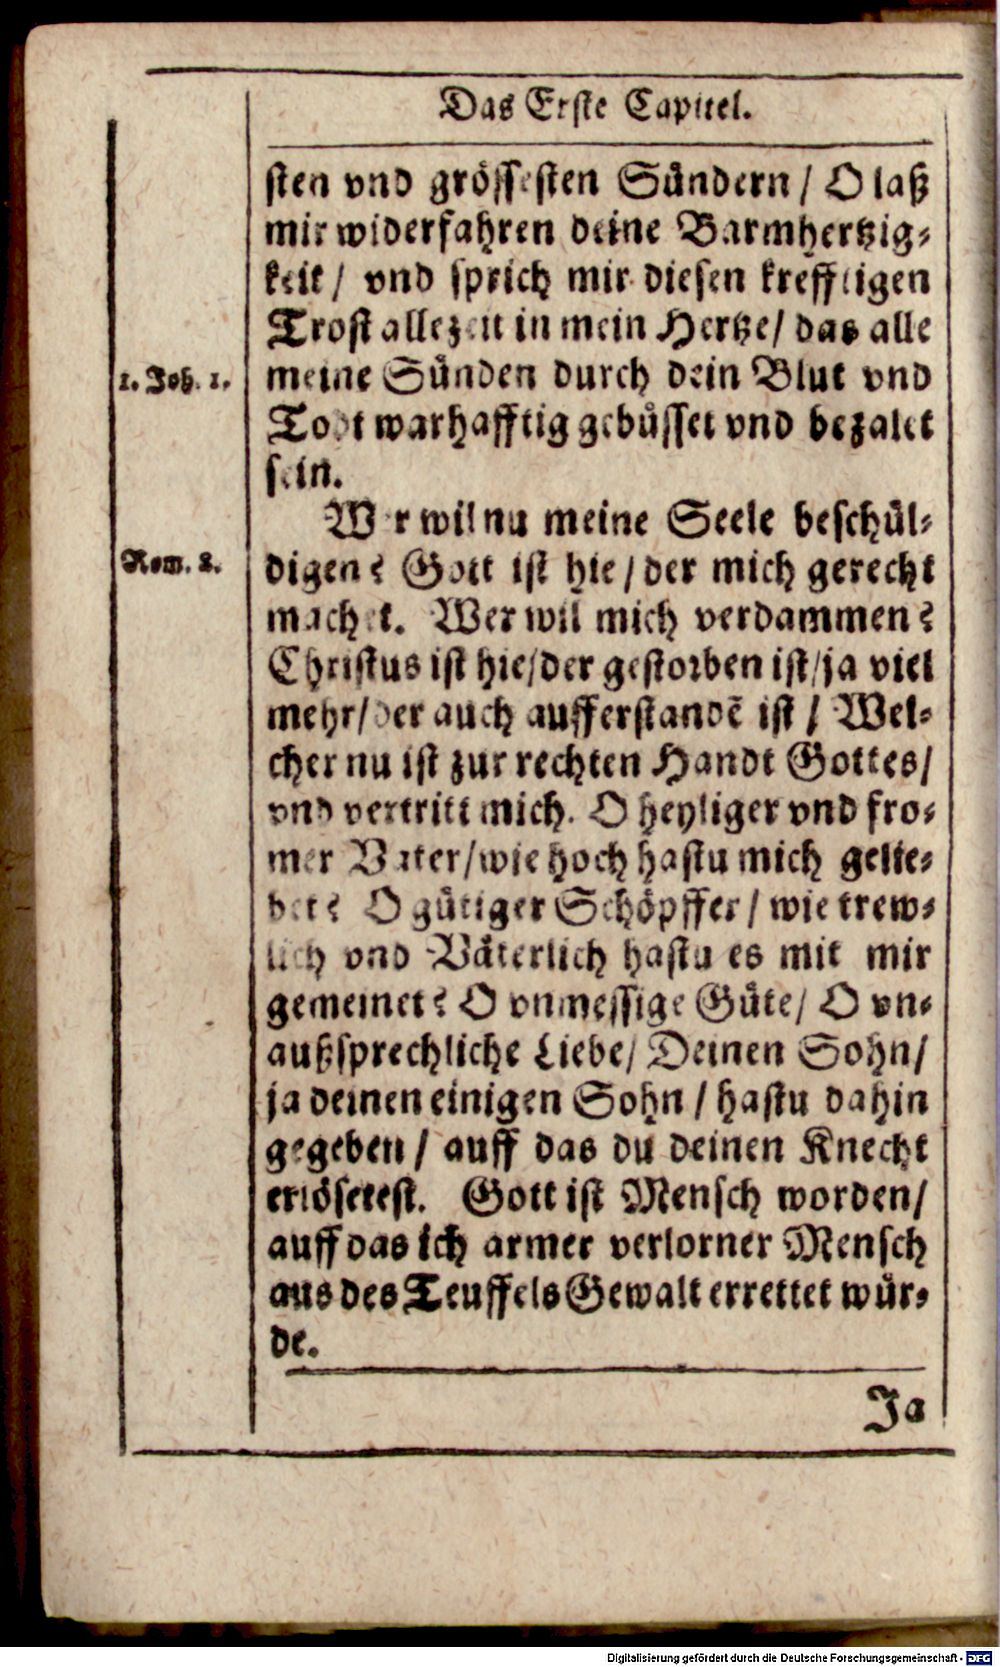 Das Erste Capittel.
sten vnd grössesten Sündern / O laß
mir widerfahren deine Barmhertzig⸗
keit / vnd sprich mir diesen krefftigen
Trost allezeit in mein Hertze / das alle
1. Joh. 1.
meine Sünden durch dein Blut vnd
Todt warhafftig gebüsset vnd bezalet
sein.
Wer wil nu meine Seele beschül⸗
Rom. 8.
digen? Gott ist hie / der mich gerecht
machet. Wer wil mich verdammen?
Christus ist hie / der gestorben ist / ja viel
mehr / der auch aufferstandē ist / Wel⸗
cher nu ist zur rechten Handt Gottes /
vnd vertritt mich. O heyliger vnd fro⸗
mer Vater / wie hoch hastu mich gelie⸗
bet? O gütiger Schöpffer / wie trew⸗
lich vnd Väterlich hastu es mit mir
gemeinet? O vnmessige Güte / O vn⸗
außsprechliche Liebe / Deinen Sohn /
ja deinen einigen Sohn / hastu dahin
gegeben / auff das du deinen Knecht
erlösetest. Gott ist Mensch worden /
auff das ich armer verlorner Mensch
aus des Teuffels Gewalt errettet wür⸗
de.
Ja
Digitalisierung gefördert durch die Deutsche Forschungsgemeinschaft - DFG